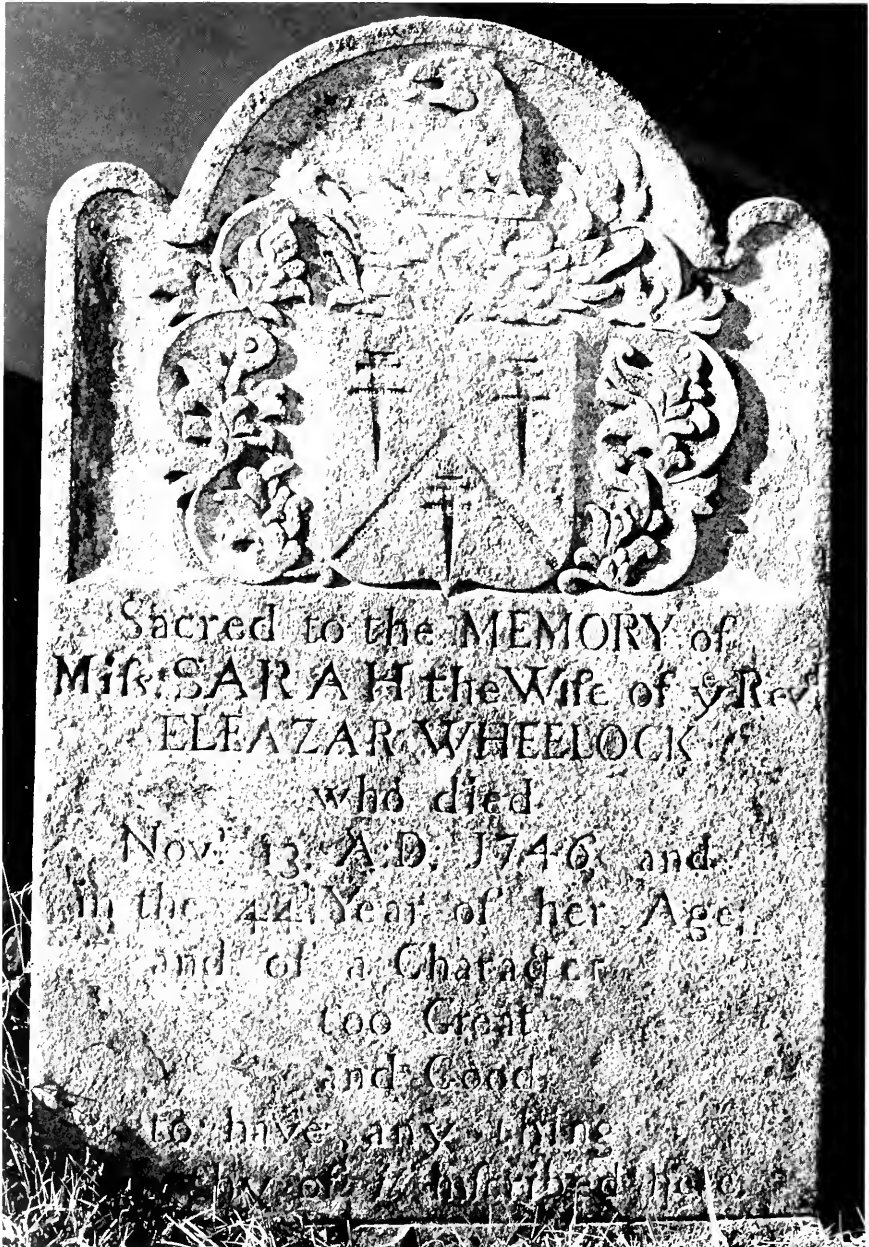 Sacred to the MEMORY of
Miſs. SARAH the Wife of yͤ Revᵈ.
ELEAZAR WHEELOCK
who died
Novʳ. 13. A.D. 1746, and
in the 44ᵗʰ Year of her Age
and of a Character
too Great
and Good
to have any thing
of it Inſcribed here